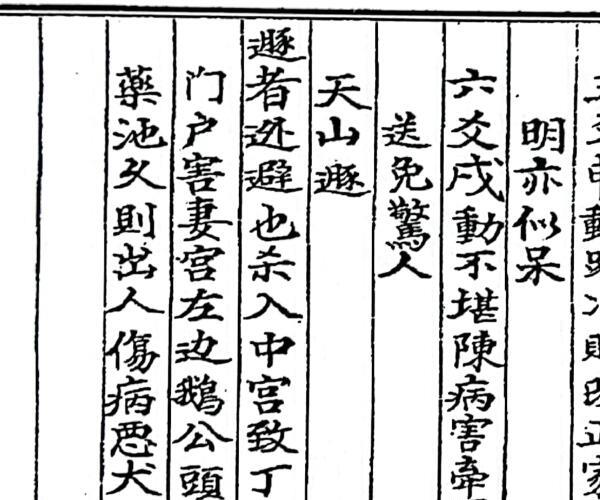 明亦似呆
六爻戌動不堪陳病害牽
送免驚人
天山遯
遯者迯避也杀入中宮致丁
门户害妻宮左边鵝公頭
藥池久則出人傷病悪犬